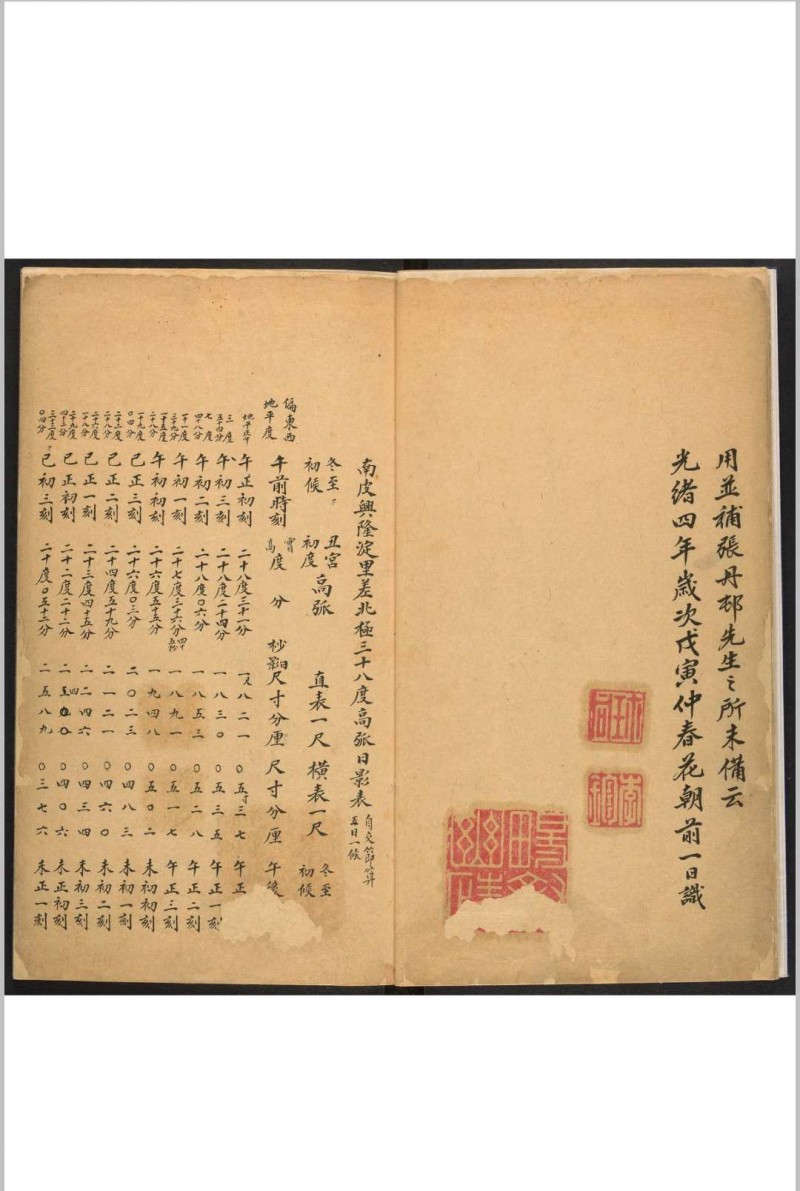 用並補張丹邨先生之所未備云
光緒四年歲次戊寅仲春花朝前一日識
南皮興隆淀里差北極三十八度高弧日影表 自交節算五日一候
冬至初候 丑宮初度 高弧 直表一尺 橫表一尺 冬至初候
偏東西地平度 午前時刻 實高 度 分 秒 日影 尺寸分厘 尺寸分厘 午後
地平正中 午正初刻 二十八度三十一分 一尺八二一 〇五寸三七 午正
三度五十四分 午初三刻 二十八度二十四分 一八三〇 〇五三五 午正一刻
七度四十八分 午初二刻 二十八度〇六分 一八五三 〇五二八 午正二刻
十一度三十九分 午初一刻 二十七度三十六分 一八九一 〇五一七 午正三刻
十五度二十八分 午初初刻 二十六度五十五分 一九四八 〇五〇二 未初初刻
十九度〇四分 巳正三刻 二十六度〇三分 二〇二三 〇四八三 未初一刻
二十三度二十八分 巳正二刻 二十四度五十九分 二一二一 〇四六〇 未初二刻
二十六度十八分 巳正一刻 二十三度四十五分 二二四六 〇四三四 未初三刻
二十九度四十三分 巳正初刻 二十二度二十二分 二四〇〇 〇四〇六 未正初刻
三十三度〇四分 巳初三刻 二十度〇五十三分 二五八九 〇三七六 未正一刻